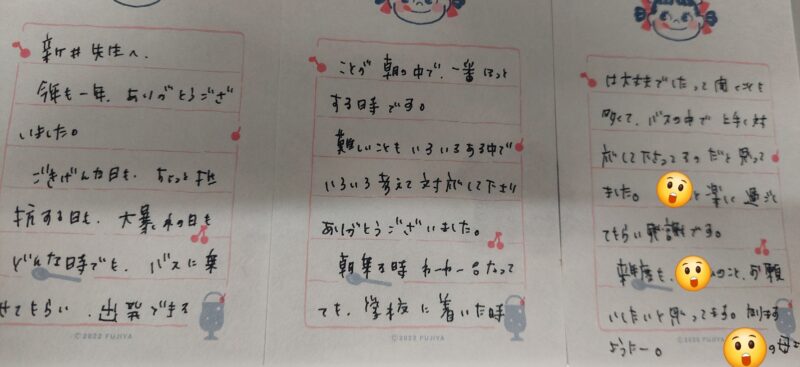 新井先生へ.
今年も一年、ありがとうござ
いました。
ごきげんな日も、ちょっと抵
抗する日も、大暴れの日も
どんな時でも、バスに乗
せてもらい、出発できる
©2022 FUJIYA
ことが朝の中で、一番ほっと
する時です。
難しいこともいろいろある中で
いろいろ考えて対応して下さり
ありがとうございました。
朝乗る時 わーわー言なって
ても、学校に着いた時
©2022 FUJIYA
は大丈夫でしたって聞くことも
多くて、バスの中で上手く対
応して下さってるのだと思って
ました。 と楽しく過ごし
てもらい感謝です。
来年度も、 のこと、お願
いしたいと思ってます。
の母より